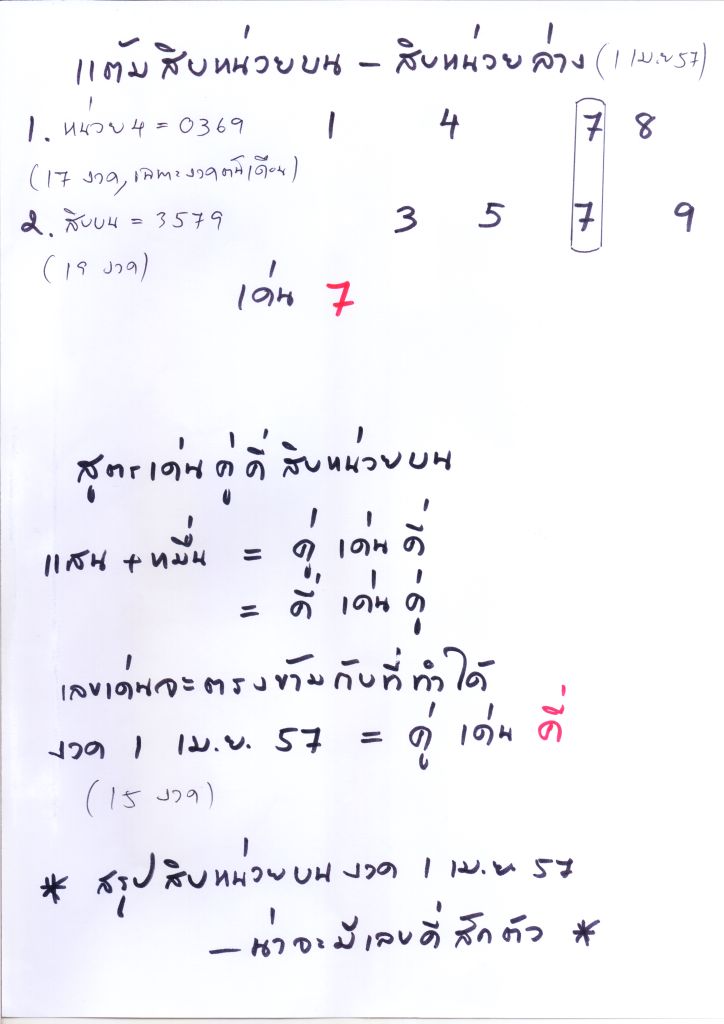 แต้มสิบหน่วยบน - สิบหน่วยล่าง (1 เม.ย 57)
1. หน่วย 4 = 0369 1 4 7 8
(17 งวด, เฉพาะงวดต้นเดือน)
2. สิบบน = 3579 3 5 7 9
(19 งวด)
เด่น 7
สูตรเด่นคู่คี่ สิบหน่วยบน
แสน + หมื่น = คู่ เด่น คี่
= คี่ เด่น คู่
เลขเด่นจะตรงข้ามกับที่ทำได้
งวด 1 เม.ย. 57 = คู่ เด่น คี่
(15 งวด)
* สรุปสิบหน่วยบน งวด 1 เม.ย. 57
- น่าจะมีเลขคี่สักตัว *